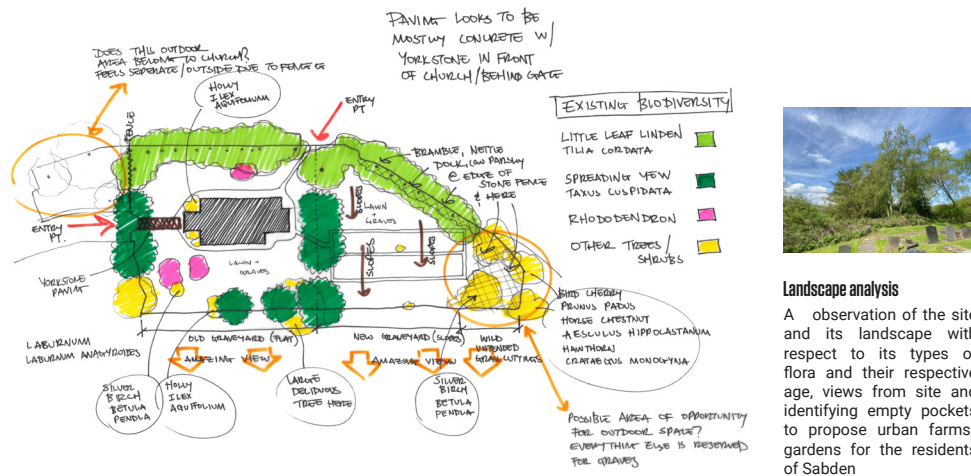 PAVING LOOKS TO BE
MOSTLY CONCRETE W/
YORKSTONE IN FRONT
OF CHURCH/BEHIND GATE
DOES THIS OUTDOOR
AREA BELONG TO CHURCH?
FEELS SEPERATE/OUTSIDE DUE TO FENCE
HOLLY
ILEX
AQUIFOLIUM
ENTRY
PT.
FENCE
EXISTING BIODIVERSITY
LITTLE LEAF LINDEN
TILIA CORDATA
SPREADING YEW
TAXUS CUSPIDATA
RHODODENDRON
OTHER TREES/
SHRUBS
BRAMBLE, NETTLE
DOCK, COW PARSLEY
@ EDGE OF
STONE FENCE
& HERE
SLOPES
LAWN
+
GRAVES
SLOPES
SLOPES
ENTRY
PT.
YORKSTONE
PAVING
LAWN +
GRAVES
LABURNUM
LABURNUM ANAGYROIDES
OLD GRAVEYARD (FLAT)
NEW GRAVEYARD (SLOPES)
WILD
UNTENDED
GRASS CUTTINGS
AMAZING VIEW
AMAZING VIEW
BIRD CHERRY
PRUNUS PADUS
HORSE CHESTNUT
AESCULUS HIPPOLASTANUM
HAWTHORN
CRATAEGUS MONOGYNA
SILVER
BIRCH
BETULA
PENDLA
HOLLY
ILEX
AQUIFOLIUM
LARGE
DELIDUOUS
TREE HERE
SILVER
BIRCH
BETULA
PENDLA
POSSIBLE AREA OF OPPORTUNITY
FOR OUTDOOR SPACE?
EVERYTHING ELSE IS RESERVED
FOR GRAVES
Landscape analysis
A observation of the site
and its landscape with
respect to its types of
flora and their respective
age, views from site and
identifying empty pockets
to propose urban farms,
gardens for the residents
of Sabden